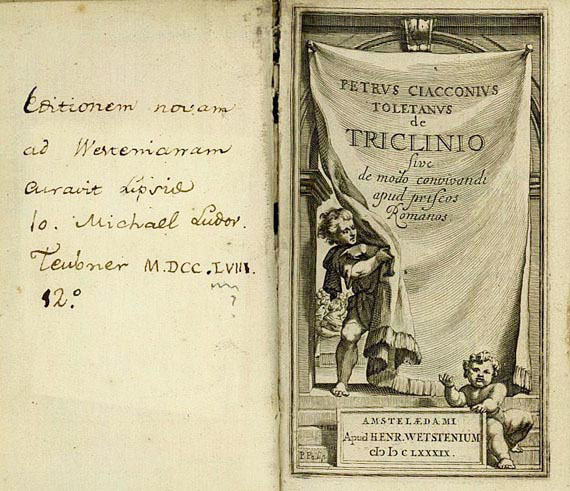 Editionem novam
ad Westenianam
curavit Lipsiae
Io. Michael Ludov.
Teubner M.DCC.LVIII.
12.°
?
PETRVS CIACCONIVS
TOLETANVS
de
TRICLINIO
sive
de modo convivandi
apud priscos
Romanos
AMSTELÆDAMI
Apud HENR. WETSTENIUM
cIɔ Iɔ C LXXXIX.